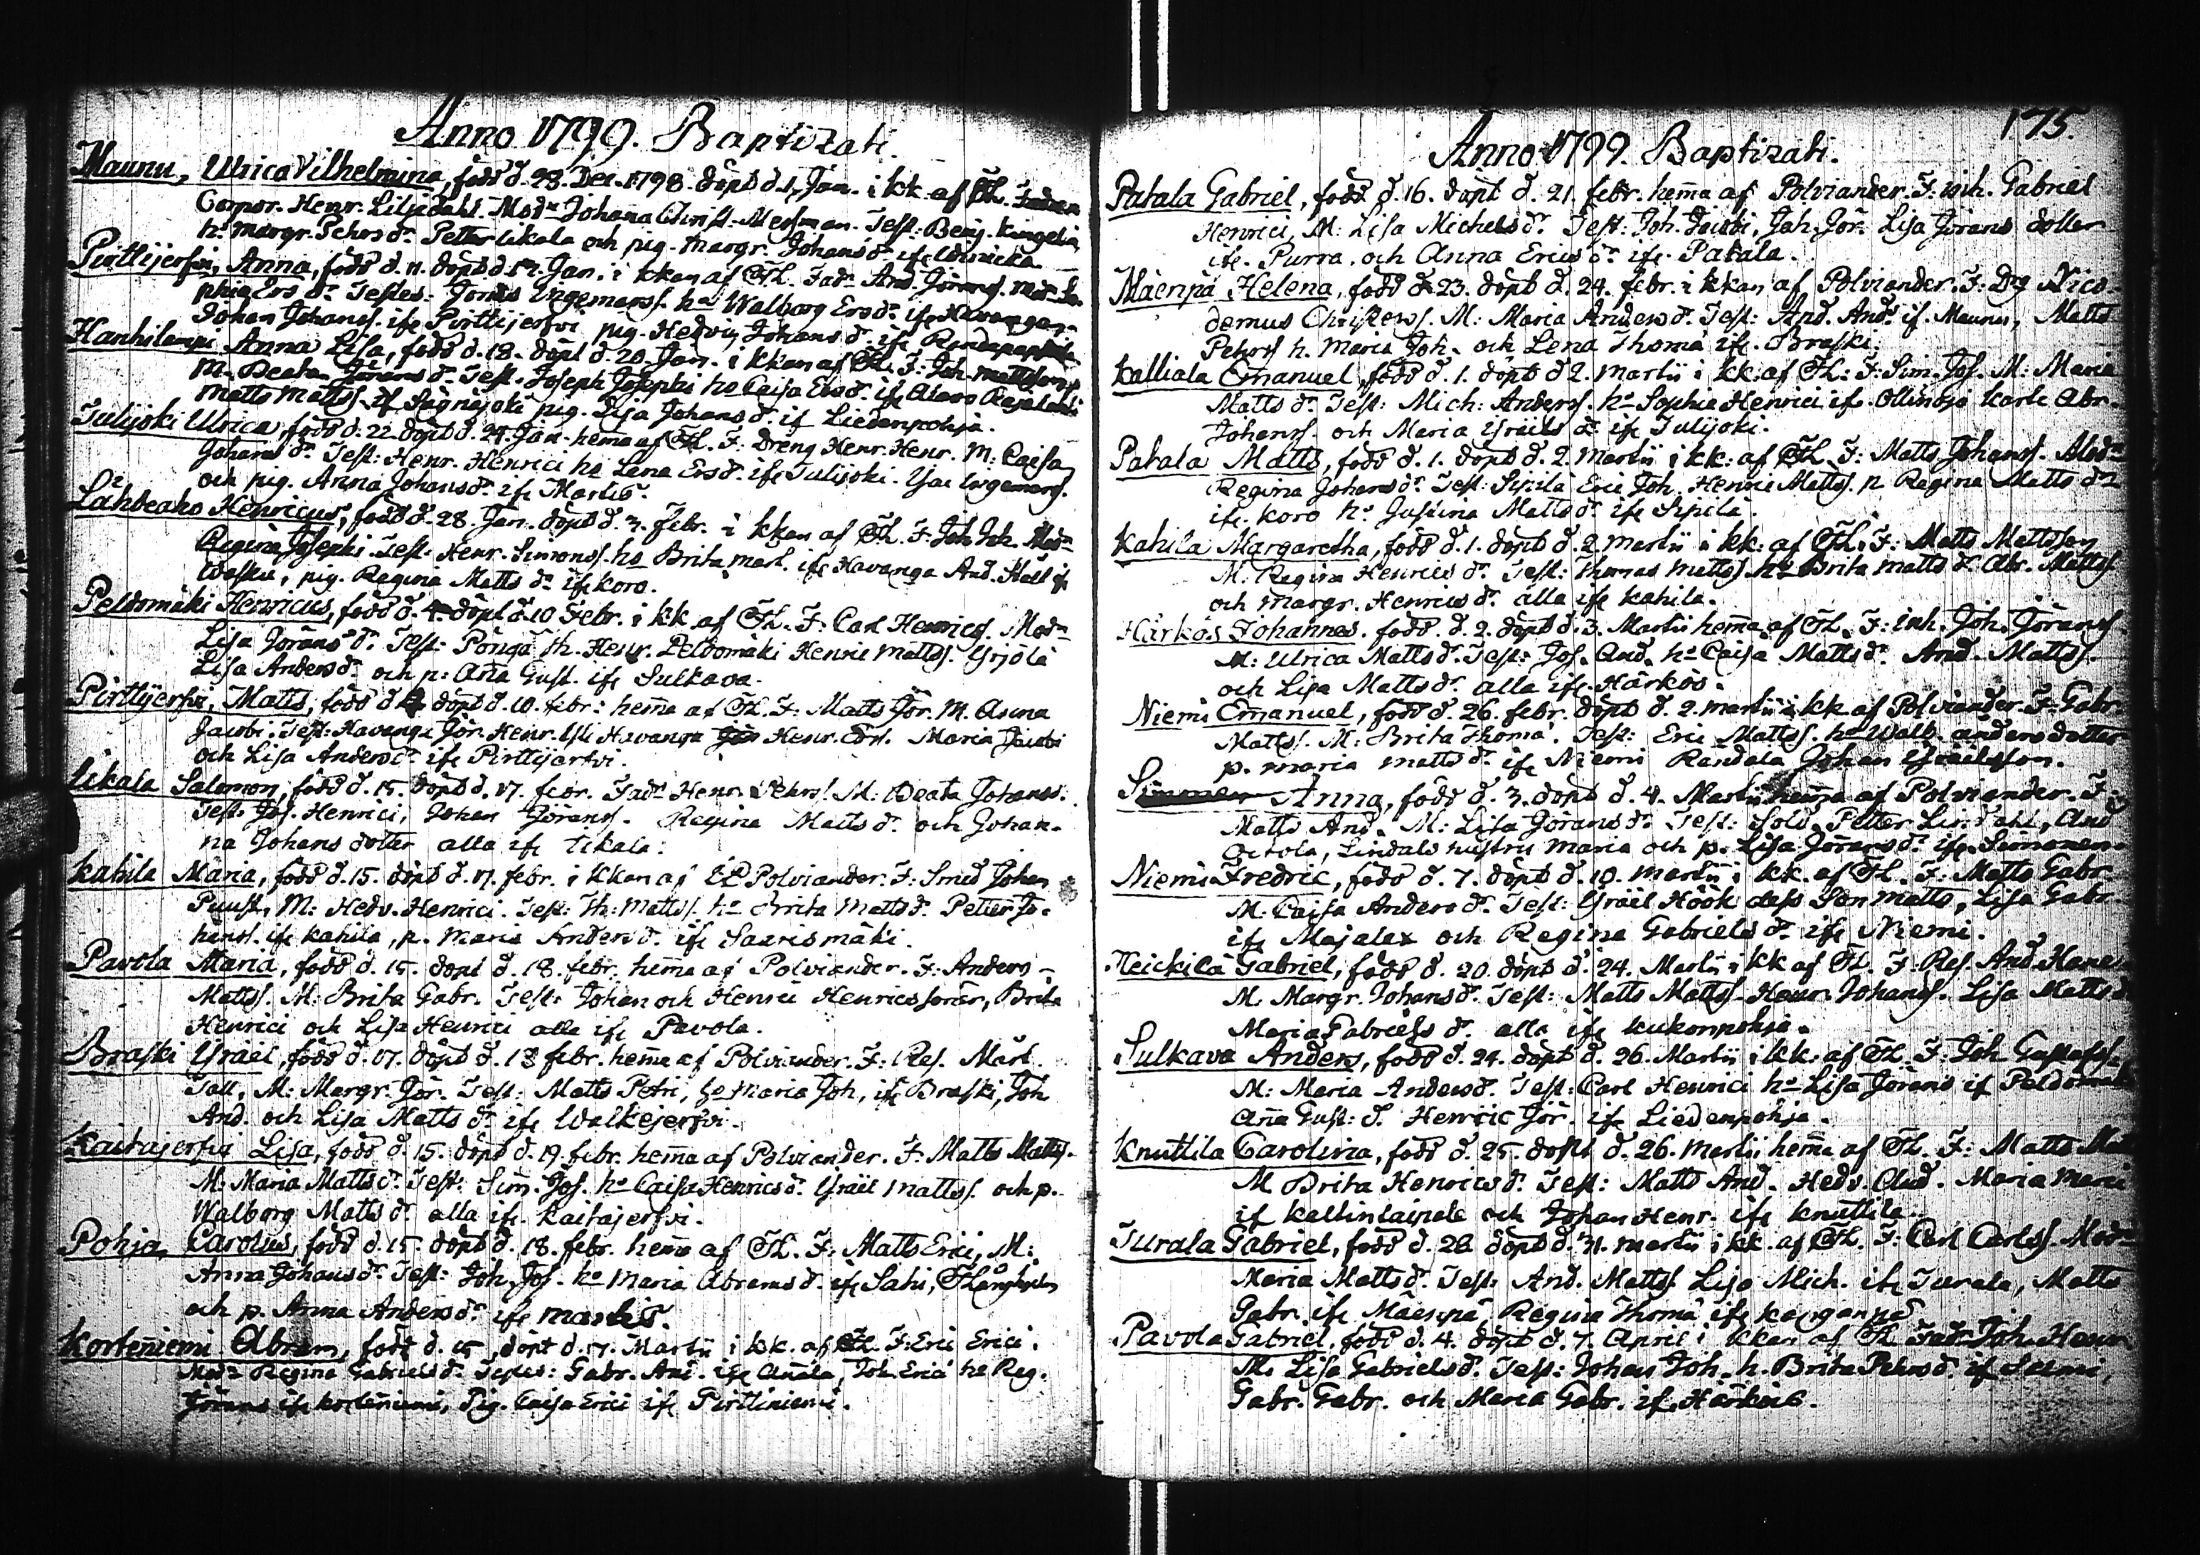 Anno 1799. Baptizati.
Maunu, Ulrica Vilhelmina, född d. 28. Dec. 1798. döpt d. 1. Jan. i kk. af Th. Fadren
Corpor. Henr. Liljedahl. Modn Johana Christ. Test: Benj.
hn margr. Pehrs dr Petter likala och pig. Margr. Johans dr ife
Pirttijerfvi, Anna, född d. 11. döpt d. 12. Jan. i kkan af Th. Fadn And. Jörans. Modn So-
phia Ers dr Testes. Jonas Ingemarss. hn Walborg Ers dr ife
Johan Johanss. ife Pirttijerfvi pig. Hedvig Johans dr ife
Hanhilampi Anna Lisa, född d. 18. döpt d. 20. Jan. i kkan af Th. F: Joh. Mattsson,
M. Beata Jörans dr Test. Joseph Josephi hn Caisa Ers dr ife
Matts Mattss. if pig. Lisa Johans dr if Liedenpohja.
Julijoki Ulrica född d. 22. döpt d. 27. Jan. hema af Th. F. Dreng Henr. Henr. M: Caisa
Johans dr Test: Henr. Henrici hn Lena Ers d. ife Julijoki. Isac Ingemars.
och pig. Anna Johans dr ife Martis.
Lähteaho Henricus, född d. 28. Jan. döpt d. 3. Febr. i kkan af Th. F. Joh. Joh. Modn
Regina Josephi. Test. Henr. Simonss. hn Brita mart. ife Havanga And. Häll if
Wasku, pig. Regina Matts dr ife koro.
Peldomäki Henricus, född d. 4. döpt d. 10 Febr. i kk af Th. F: Carl Henrics. Modn
Lisa Jörans dr Test: Pönga Th. Henr. Peldomäki Henric Mattss. Yrjölä
Lisa Anders dr och p: Aña Gust. ife Sulkava.
Pirttijerfvi, Matts, född d. döpt d. 10. febr: hem̃a af Th. F: Matts Jör. M. Anna
Jacobi. Test: Havanga Jör. Henr. Havanga Henr. Ers. Maria Jacobi
och Lisa Anders dr ife Pirttijärfvi.
likala Salomon, född d. 15. döpt d. 17. febr. Fadr Henr. Pehrs. M: Beata Johanss.
Test: Jos. Henrici, Johan Jörans. Regina Matts dr och Johan-
na Johans dotter alla ife likala.
Kahila Maria, född d. 15. döpt d. 17. febr. i kkan af Polviander. F: Smed Johan
Puust, M: Hedv. Henrici. Test: Th: Mattss. hn Brita Matts dr Petter Jo-
hans. ife Kahila, p. Maria Anders dr ife Saarismäki.
Pavola Maria, född d. 15. döpt d. 18. febr. hem̃a af Polviander. F: Anders-
Mattss. M: Brita Gabr. Test: Johan och Henric Henricssöner, Brita
Henrici och Lisa Henrici alla ife Pavola.
Braski Israel, född d. 17. döpt d. 18 febr. hem̃a af Polviander. F: Res. Mårt.
Tall, M: Margr. Jör. Test: Matts Petri, hn Maria Joh, ife Braski, Joh
And. och Lisa Matts dr ife Walkejerfvi.
Kaitajerfvi Lisa, född d. 15. döpt d. 19. febr. hem̃a af Polviander. F. Matts Mattss.
M. Maria Matts dr Test: Sim. Jos. hn Caisa Henrics dr Israel Mattss. och p.
Walborg Matts dr alla ife Kaitajerfvi.
Pohja Carolus, född d. 15. döpt d. 18. febr. hem̃a af Th. F. Matts Erici, M:
Anna Johans dr Test: Joh. Jos. hn Maria Abrams d. ife Sahi,
och p. Anna Anders dr ife Martis.
Kortenniemi Abram, född d. 15, döpt d. 17. Martii i kk. af Th. F: Eric Erici.
Modn Regina Gabriels d. Testes: Gabr. And. ife Anala, Joh. Erici hn Reg.
Jörans ife kortenniemi, Pig. Caisa Erici ife Pirttiniemi.
175.
Anno 1799. Baptizati.
Patala Gabriel, född d. 16. döpt d. 21. febr. hem̃a af Polviander. F. inh. Gabriel
Henrici, M: Lisa Michels dr Test: Joh. Jacobi, Joh. Jör. Lisa Jörans dotter
ife. Purra. och Anna Erics dr ife. Patala.
Mäenpä Helena, född d. 23. döpt d. 24. febr. i kkan af Polviander. F: Drg Nico-
demus Christers. M: Maria Anders dr Test: And. And. if. Maunu, Matts
Pehrss h. Maria Joh. och Lena Thoma ife. Braski.
Kalliala Emanuel, född d. 1. döpt d 2. Martii i kk. af Th: F: Sim. Jos. M: Maria
Matts dr Test: Mich: Anderss. hn Sophia Henrici ife. Ollinoja Karle Abr.
Johanss. och Maria Israels dr ife Julijoki.
Patala Matts, född d. 1. döpt d. 2. Martii i kk: af Th. F: Matts Johanss. Modn
Regina Johans dr Test: Sipilä Eric Joh. Henric Mattss. p Regina Matts dr
ife. koro hn Justina Matts dr ife Sipilä.
Kahila Margaretha, född d. 1. döpt d. 2. Martii i kk: af Th. F: Matts Mattsson
M: Regina Henrics dr Test: Thomas Mattss hn Brita Matts dr Abr. Mattss
och Margr. Henrics dr alla ife Kahila.
Härkös Johannes. född d. 2. döpt d. 3. Martii hem̃a af Th. F: inh. Joh. Jörans.
M: Ulrica Matts dr Test: Jos. And. hn Caisa Matts dr And. Mattss.
och Lisa Matts dr alla ife. Härkös.
Niemi Em̃anuel, född d. 26. febr. döpt d. 2. Martii i kk af Polviander. F: Gabr.
Mattss. M: Brita Thomä. Test: Eric Mattss. hn Walb. anders dotter
p. Maria Matts dr ife Niemi Randala Johan Israelsson.
Anna, född d. 3. döpt d. 4. Martii hem̃a af Polviander. F:
Matts And. M: Lisa Jörans dr Test: Sold. Petter Lindahl, And
Lindals hustru Maria och p. Lisa Jörans dr ife Simonen.
Niemi Fredric, född d. 7. döpt d. 10. Martii i kk. af Th. F: Matts Gabr.
M: Caisa Anders dr Test: Israel Höök dess Son Matts, Lisa Gabr.
ife Majalax och Regina Gabriels dr ife Niemi.
Heickilä Gabriel, född d. 20. döpt d. 24. Martii i kk af Th. F: Res. And.
M. Margr. Johans dr Test: Matts Mattss. Henr. Johanss. Lisa Matts d.
Maria Gabriels dr alla ife kukonpohja.
Sulkava Anders, född d. 24. döpt d. 26. Martii i kk. af Th. F. Joh Gustafss.
M: Maria Anders dr Test: Carl Henrici hn Lisa Jörans if Peldomäki
Aña Gust: d. Henric Jör. ife Liedenpohja.
Knuttila Carolina, född d. 25. döpt d. 26. Martii hem̃a af Th. F: Matts
M Brita Henrics dr Test: Matts And. Hedv. And. Maria
if Kallinlaipele och Johan Henr. ife Knuttila.
Turala Gabriel, född d. 28. döpt d. 31. Martii i kk. af Th. F: Carl Carlss. Modn
Maria Matts dr Test: And. Mattss. Lisa Mich. ife Turala, Matts
Gabr. ife Mäenpä, Regina Thomä ife karganpä
Pavola Gabriel, född d. 4. döpt d. 7. April i kkan af Th Fadr Joh. Henr.
M. Lisa Gabriels d. Test: Johan Joh. h. Brita Pehrs d. if
Gabr. Gabr. och Maria Gabr. if. Härkös.